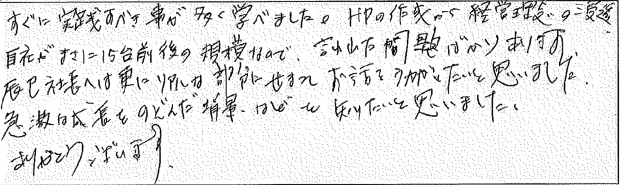 すぐに実践すべき事が多く学べました。HPの作成から経営理念の
自社がまさに15台前後の規模なので、言われた問題ばかりあります。
辰巳社長へは更にリアルな部分にせまってお話をうかがいたいと思いました。
急激な成長をのぞんだ背景などを知りたいと思いました。
ありがとうございます。